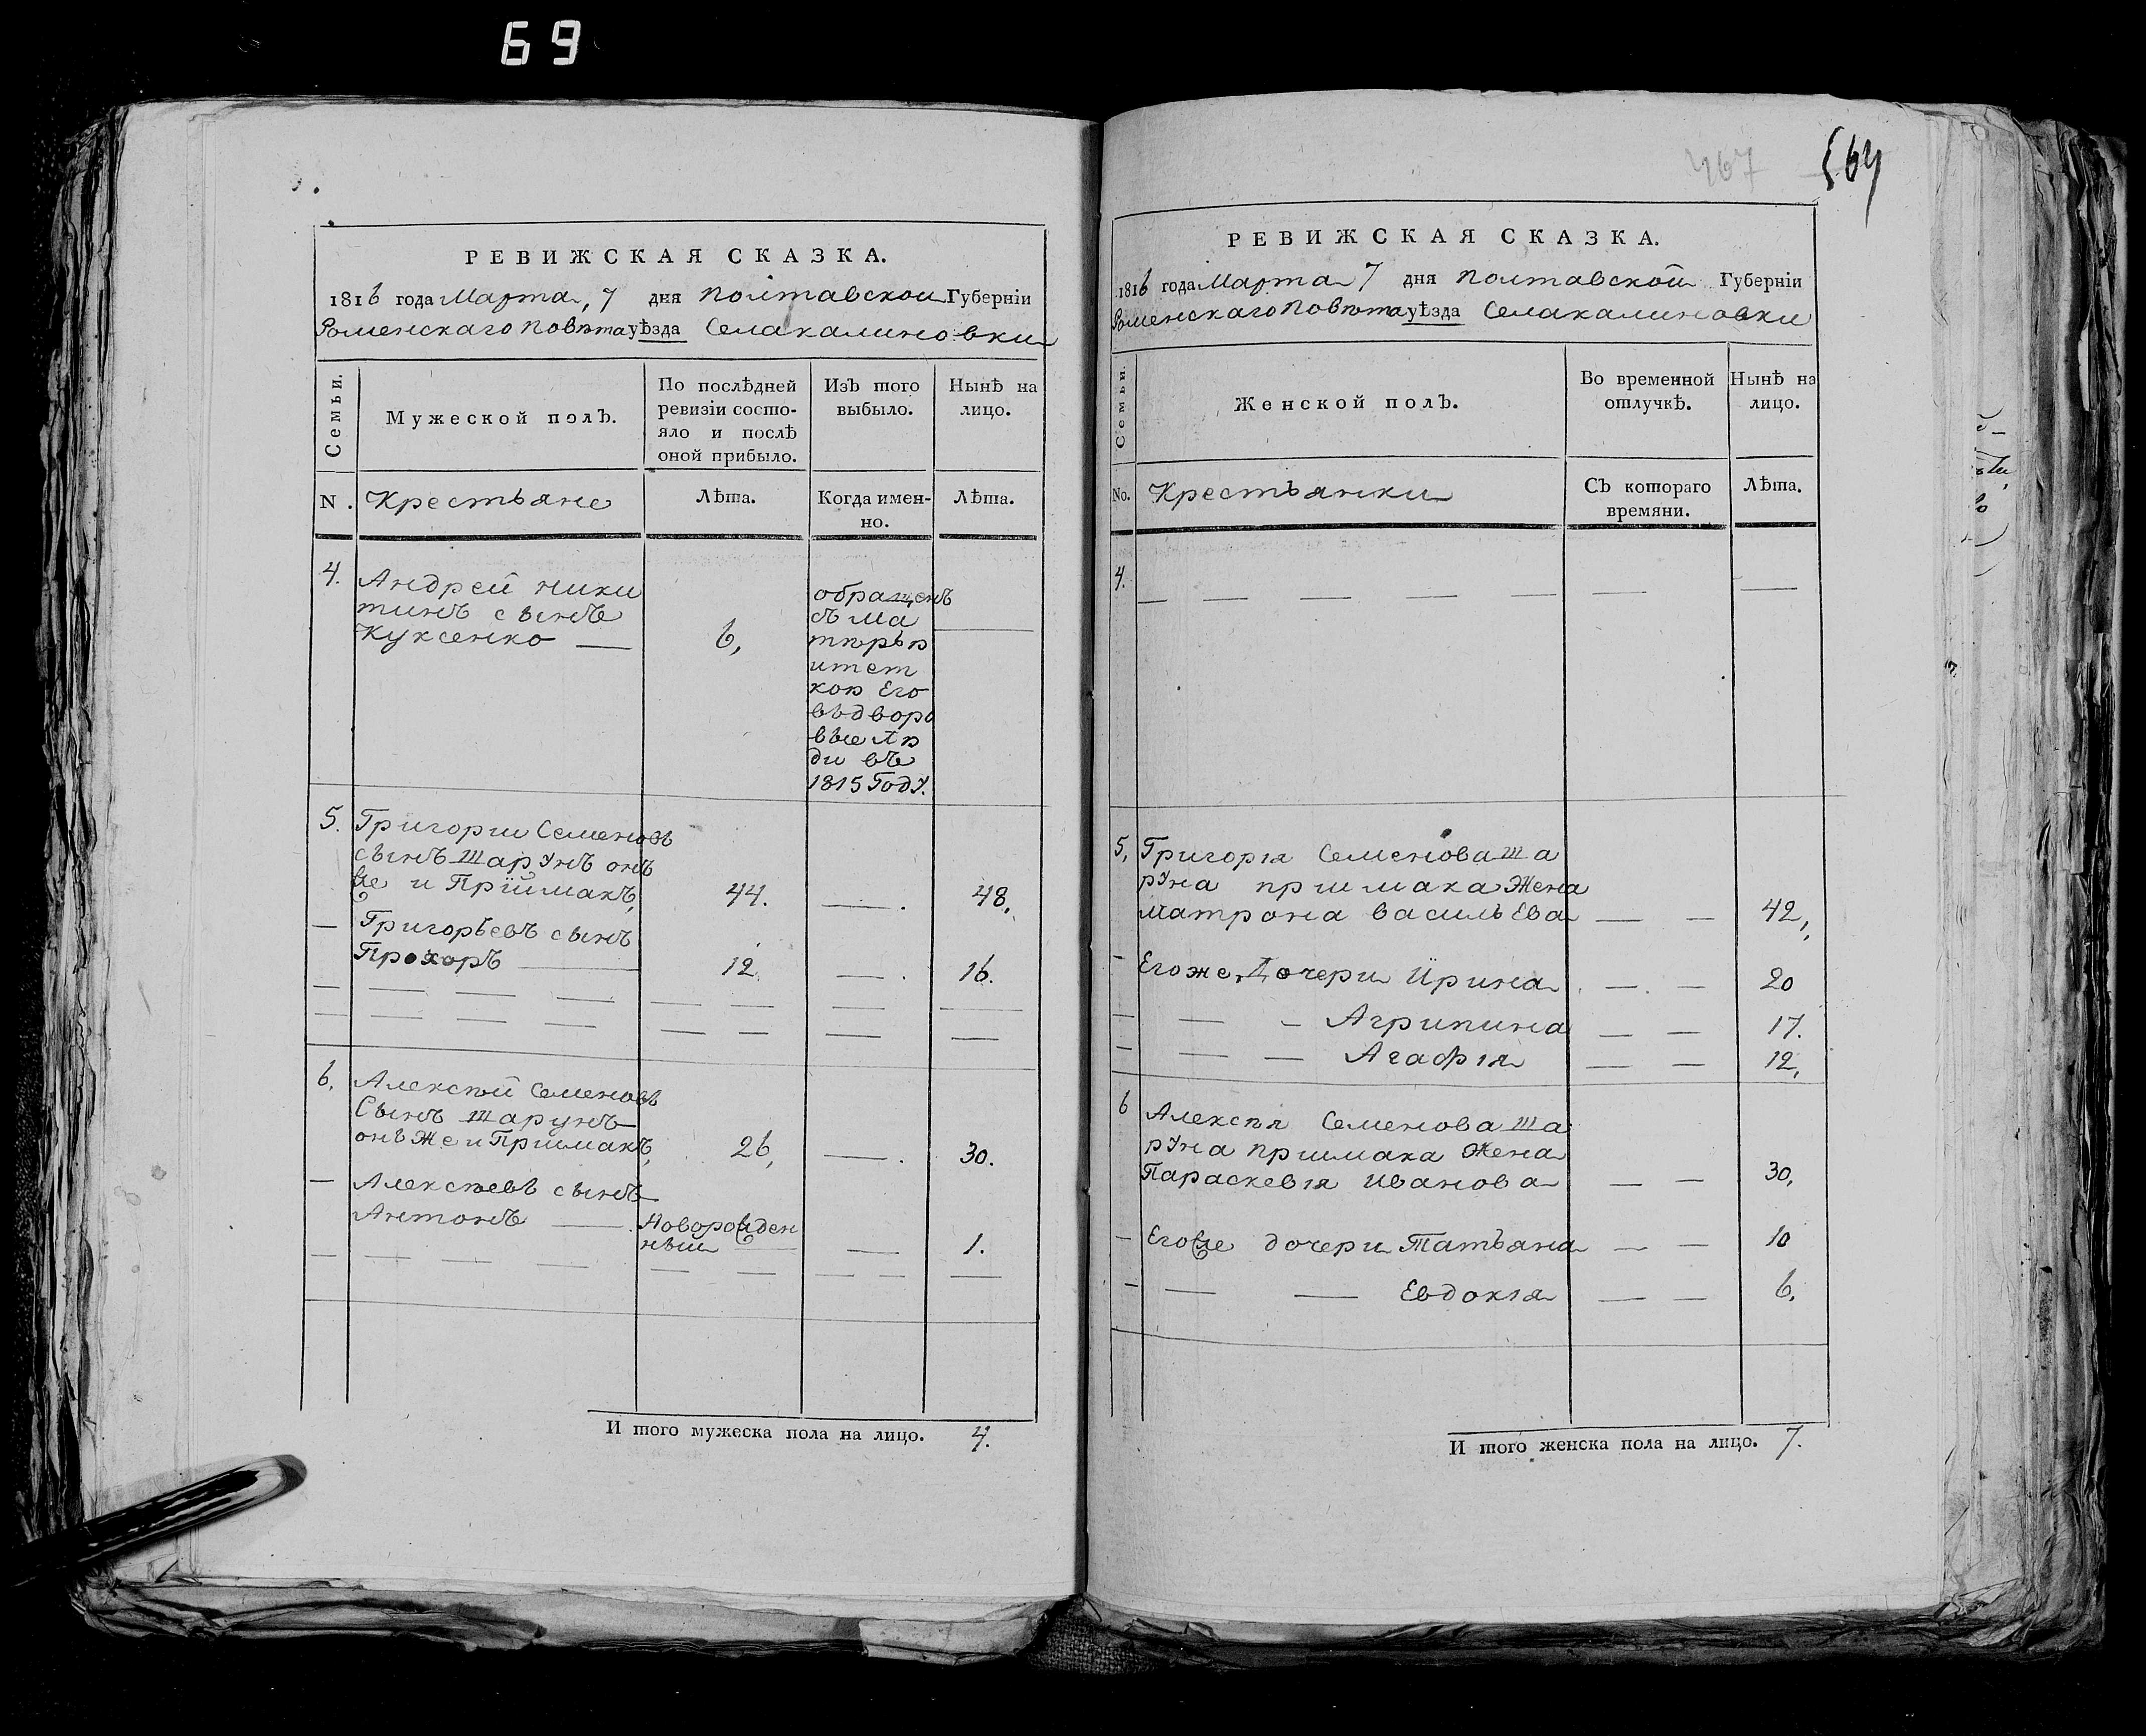 69
РЕВИЖСКАЯ СКАЗКА.
1816 года Марта, 7 дня Полтавской Губерніи
Роменскаго Повѣта уѣзда Села калиновки
Семьи.
Мужеской полъ.
По послѣдней ревизіи состо-
яло и послѣ
оной прибыло.
Изъ того
выбыло.
Нынѣ на
лицо.
N.
Крестьяне
Лѣта.
Когда имен-
но.
Лѣта.
4.
Андрей ники
тинъ сынъ
Куксенко —
6,
обращенъ
съ ма
тѣрью
и тет
кою Его
въдворо
вые лю
ди въ
1815 Году.
5.
Григории Семеновъ
сынъ Шарунъ онъ
же и Пріймакъ,
44.
48,
— Григорьевъ сынъ
Прохоръ —
12
16.
6.
Алексѣй Семеновъ
Сынъ Шарунъ
онъ Же и Приимакъ,
26,
30.
— Алексѣевъ сынъ
Антонъ —
Новорожден
ныи
1.
И того мужеска пола на лицо. 4.
467
564
РЕВИЖСКАЯ СКАЗКА.
1816 года Марта 7 дня Полтавской Губерніи
Роменскаго Повѣта уѣзда Села калиновки
Семьи.
Женской полъ.
Во временной
отлучкѣ.
Нынѣ на
лицо.
No.
Крестьянки
Съ котораго
времяни.
Лѣта.
4.
5,
Григорія Семенова Ша
руна приимака Жена
матрона васильЕва — — 42,
— Егоже Дочери Ирина — — 20
— — — Агрипина — — 17.
— — — Агафія — — 12,
6
Алексѣя Семенова Ша
руна приимака Жена
Параскевія Иванова — — 30,
— Егоже дочери Татьяна — — 10
— — — Евдокія — — 6.
И того женска пола на лицо. 7.